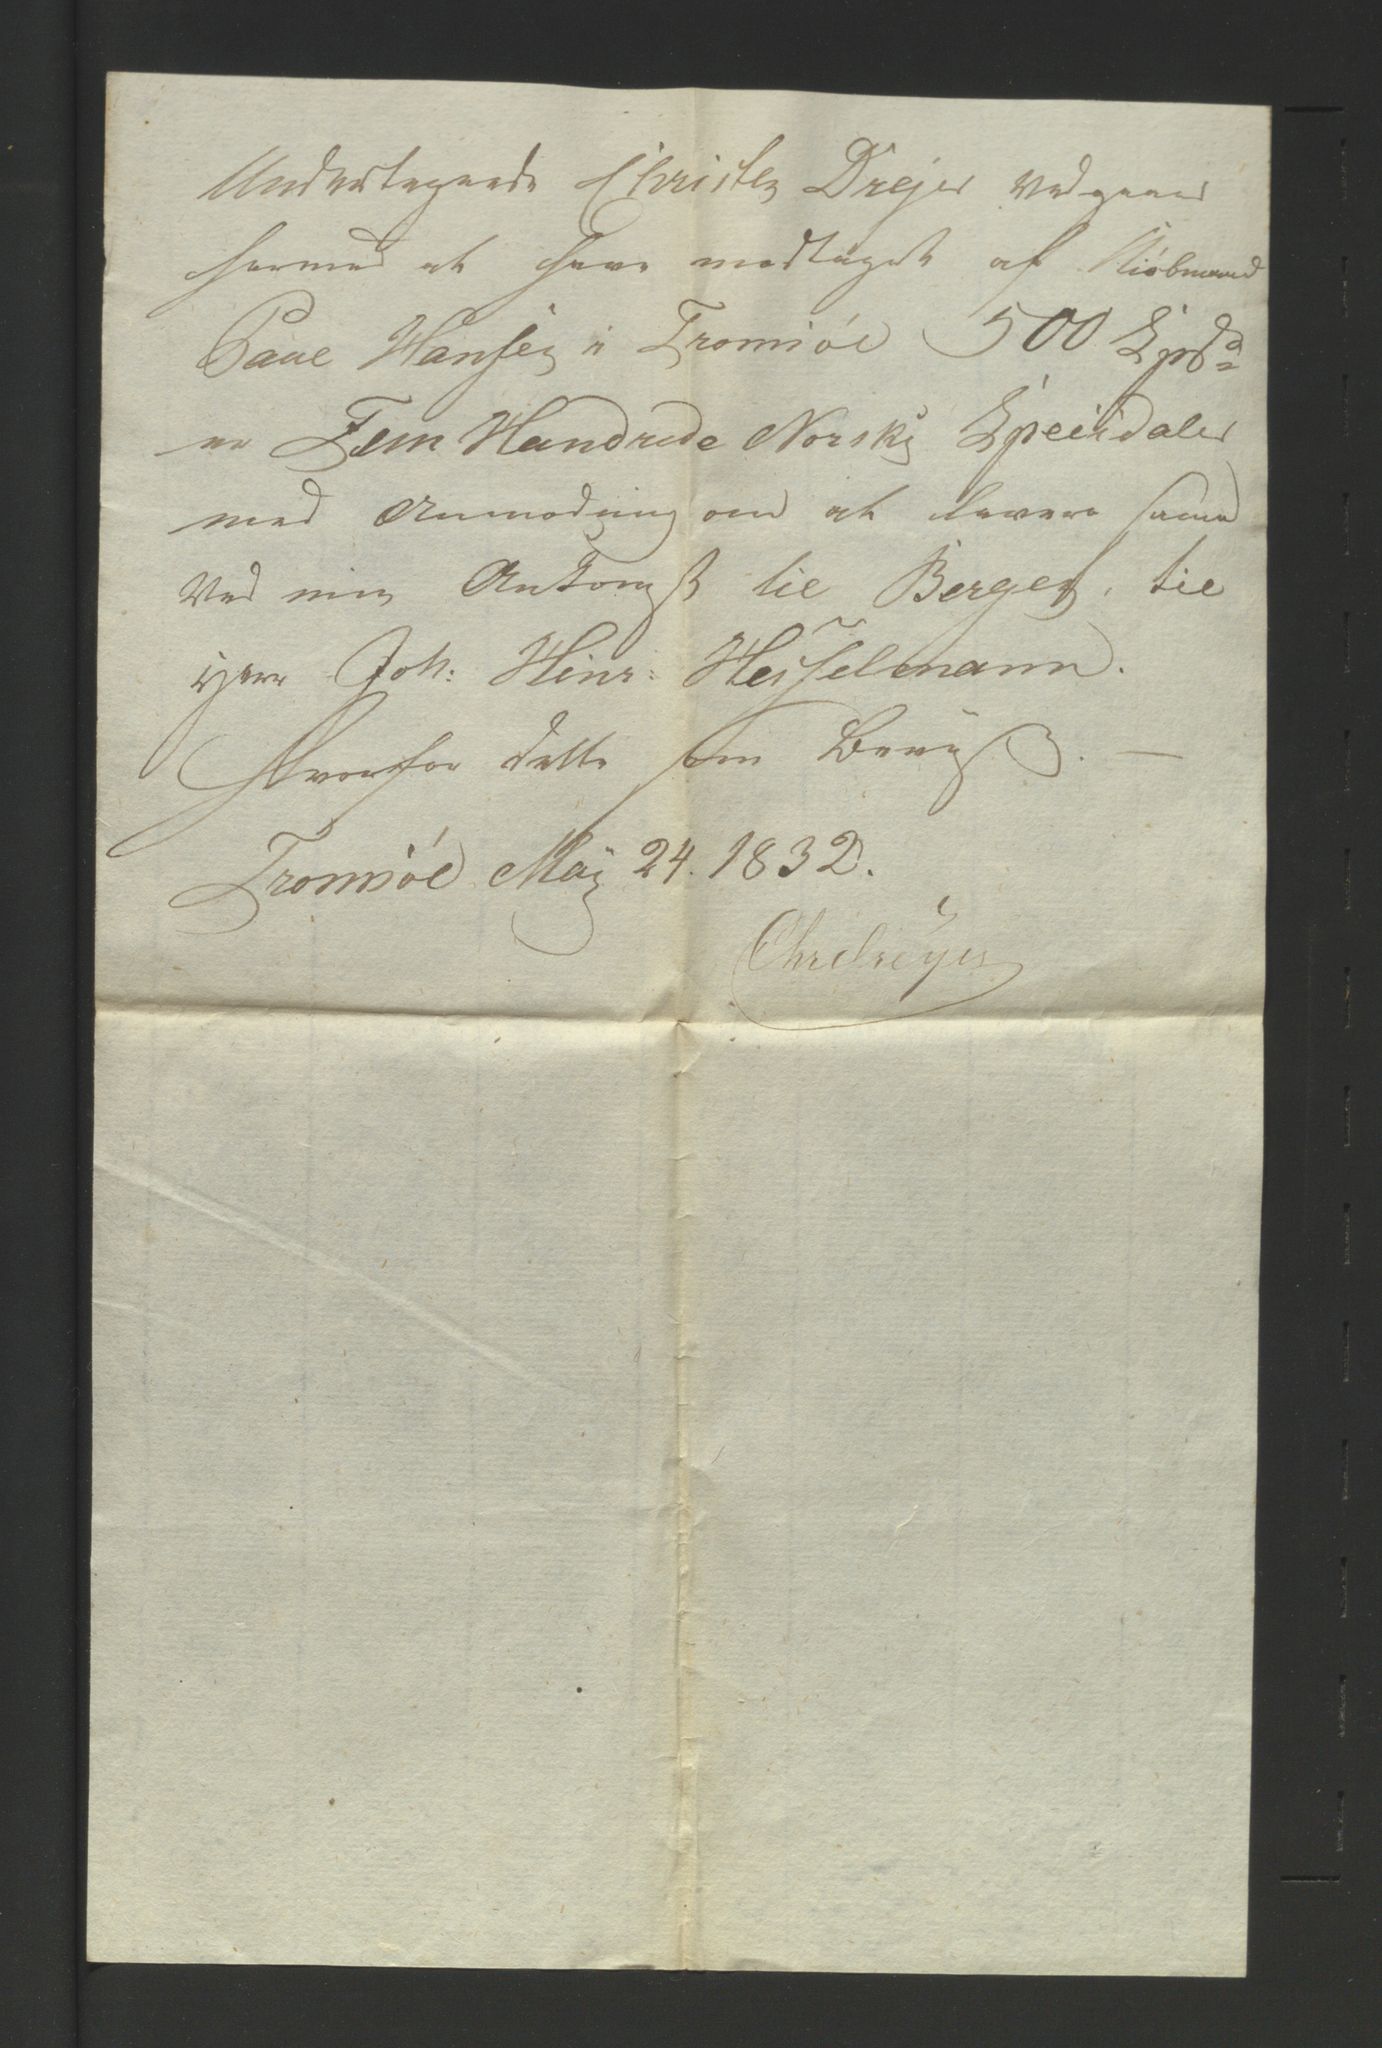 Undertegnede Christen Drejer vedgaaer
hermed at have modtaget af Kiøbmand
Paul Hansen i Tromsøe 500 Spd
er Fem Hundrede Norske Speciedaler
med Anmodning om at levere samme
ved min Ankomst til Bergen, til
Herr Joh: Hinr: Hesselmann.
Hvorfor dette som Beviis. —
Tromsøe Maj 24. 1832.
Chr Dreyer